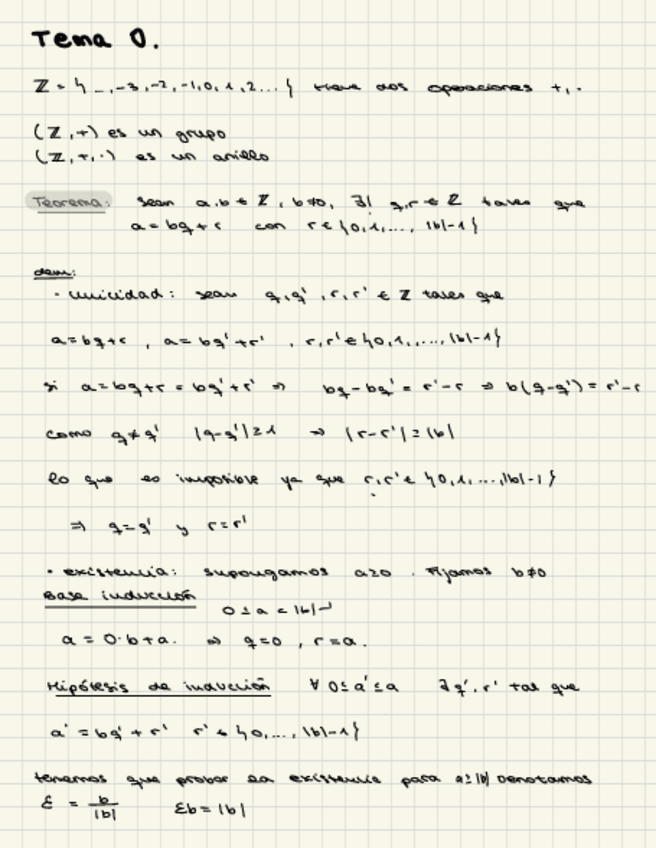 Tema 0.
ℤ = { ..., -3, -2, -1, 0, 1, 2 ... } tiene dos operaciones +, ·
(ℤ, +) es un grupo
(ℤ, +, ·) es un anillo
Teorema: Sean a, b ∈ ℤ, b≠0, ∃! q, r ∈ ℤ tales que
a = bq + r con r ∈ {0, 1, ..., |b|-1}
dem:
· unicidad: sean q, q', r, r' ∈ ℤ tales que
a = bq + r , a = bq' + r' , r, r' ∈ {0, 1, ..., |b|-1}
si a = bq + r = bq' + r' ⇒ bq - bq' = r' - r ⇒ b(q - q') = r' - r
como q ≠ q' |q - q'| ≥ 1 ⇒ |r - r'| ≥ |b|
lo que es imposible ya que r, r' ∈ {0, 1, ..., |b|-1}
⇒ q = q' y r = r'
· existencia: supongamos a ≥ 0 . Fijamos b ≠ 0
Base inducción
0 ≤ a < |b|
a = 0·b + a. ⇒ q = 0 , r = a.
Hipótesis de inducción ∀ 0 ≤ a' ≤ a ∃ q', r' tal que
a' = bq' + r' r' ∈ {0, ..., |b|-1}
tenemos que probar la existencia para a ≥ |b| Denotamos
ε = b/|b| εb = |b|